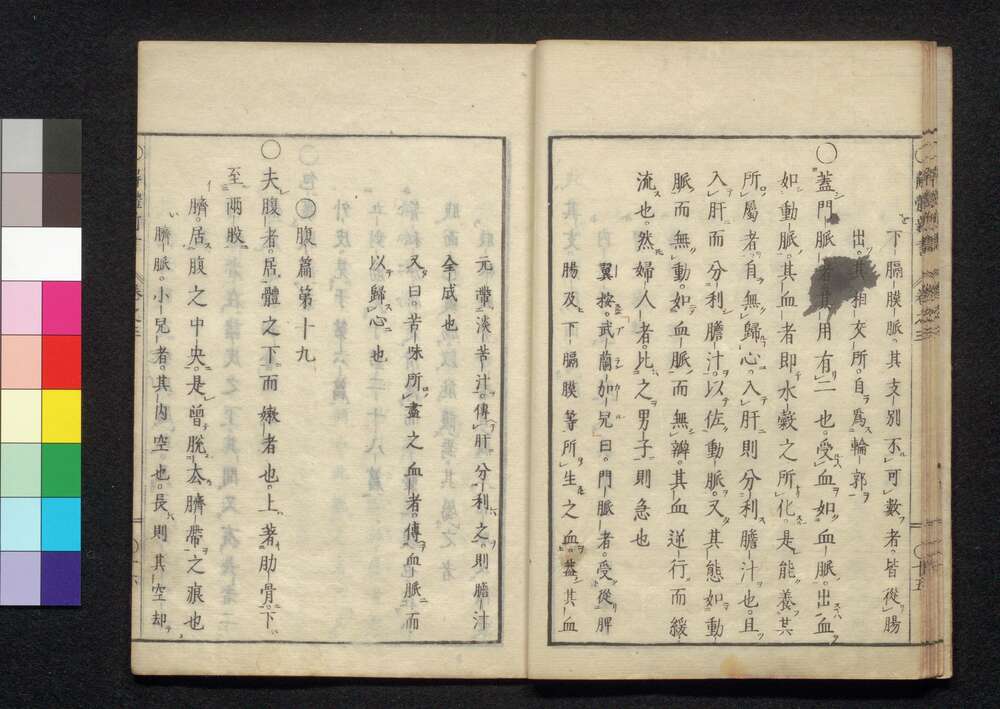 下膈膜脈。其支別不可數者。皆從腸
出。其相交所。自爲輪郭
〇蓋門脈者其用有二也。受血如血脈。出血
如動脈。其血者即水穀之所化。是能養其
所屬者。自無歸心。入肝則分利膽汁也。且
入肝而分利膽汁。以佐動脈。又其態如動
脈而無動。如血脈而無瓣。其血逆行而緩
流也。然婦人者。比之男子。則急也
翼按。武蘭加兒曰。門脈者。受從脾
腸及下膈膜等所生之血。蓋其血
元帶淡苦汁。傳肝分利之。則膽汁
全成也
又曰。苦味所盡之血者。傳血脈而
以歸心也
〇腹篇第十九
〇夫腹者。居體之下而嫩者也。上著肋骨。下
至兩股
臍。居腹之中央。是曾脫去臍帶之痕也
臍脈。小兒者。其内空也。長則其空却
解體新書 卷之三 〇十五
〇十六